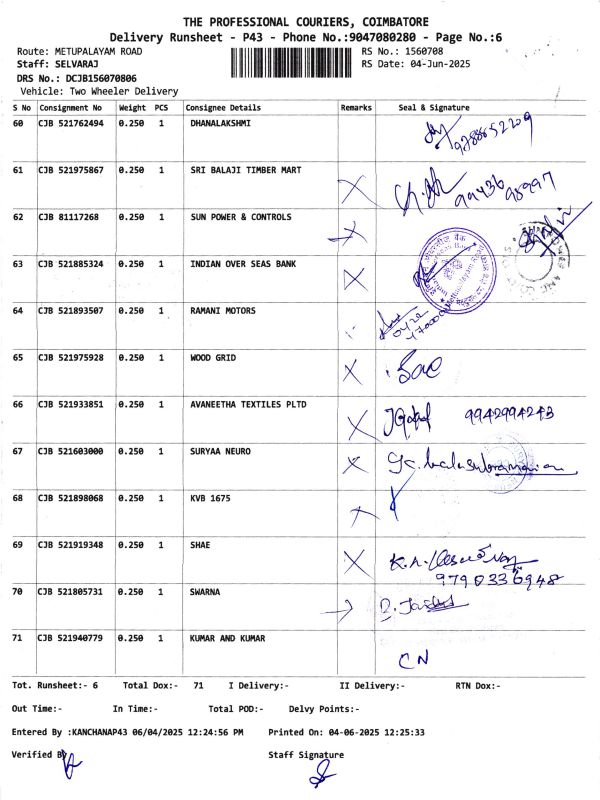 THE PROFESSIONAL COURIERS, COIMBATORE
Delivery Runsheet - P43 - Phone No.:9047080280 - Page No.:6
Route: METUPALAYAM ROAD RS No.: 1560708
Staff: SELVARAJ RS Date: 04-Jun-2025
DRS No.: DCJB156070806
Vehicle: Two Wheeler Delivery
S No Consignment No Weight PCS Consignee Details Remarks Seal & Signature
60 CJB 521762494 0.250 1 DHANALAKSHMI
61 CJB 521975867 0.250 1 SRI BALAJI TIMBER MART 99436 98997
62 CJB 81117268 0.250 1 SUN POWER & CONTROLS
63 CJB 521885324 0.250 1 INDIAN OVER SEAS BANK
64 CJB 521893507 0.250 1 RAMANI MOTORS
65 CJB 521975928 0.250 1 WOOD GRID
66 CJB 521933851 0.250 1 AVANEETHA TEXTILES PLTD JGopal 9942994243
67 CJB 521603000 0.250 1 SURYAA NEURO gc.balasubramanian
68 CJB 521898068 0.250 1 KVB 1675
69 CJB 521919348 0.250 1 SHAE
9790336948
70 CJB 521805731 0.250 1 SWARNA
71 CJB 521940779 0.250 1 KUMAR AND KUMAR CN
Tot. Runsheet:- 6 Total Dox:- 71 I Delivery:- II Delivery:- RTN Dox:-
Out Time:- In Time:- Total POD:- Delvy Points:-
Entered By :KANCHANAP43 06/04/2025 12:24:56 PM Printed On: 04-06-2025 12:25:33
Verified By Staff Signature